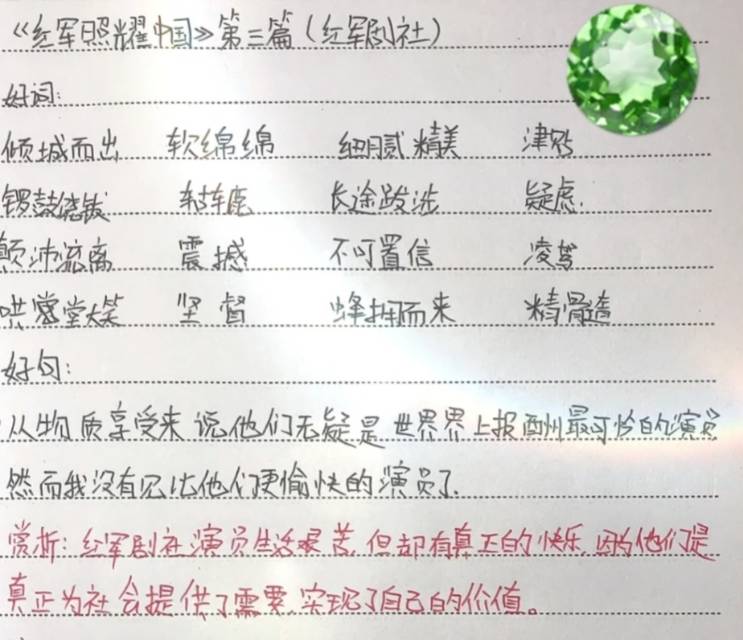 《红军照耀中国》第三篇（红军剧社）
好词:
倾城而出 软绵绵 细腻精美 津贴
锣鼓铙钹 轱辘 长途跋涉 疑虑.
颠沛流离 震撼 不可置信 凌驾
哄堂大笑 坚督 蜂拥而来 精髓
好句:
从物质享受来说他们无疑是世界界上报酬最可怜的演员
然而我没有见比他们更愉快的演员了.
赏析: 红军剧社演员生活艰苦, 但却有真正的快乐, 因为他们是
真正为社会提供了需要, 实现了自己的价值。